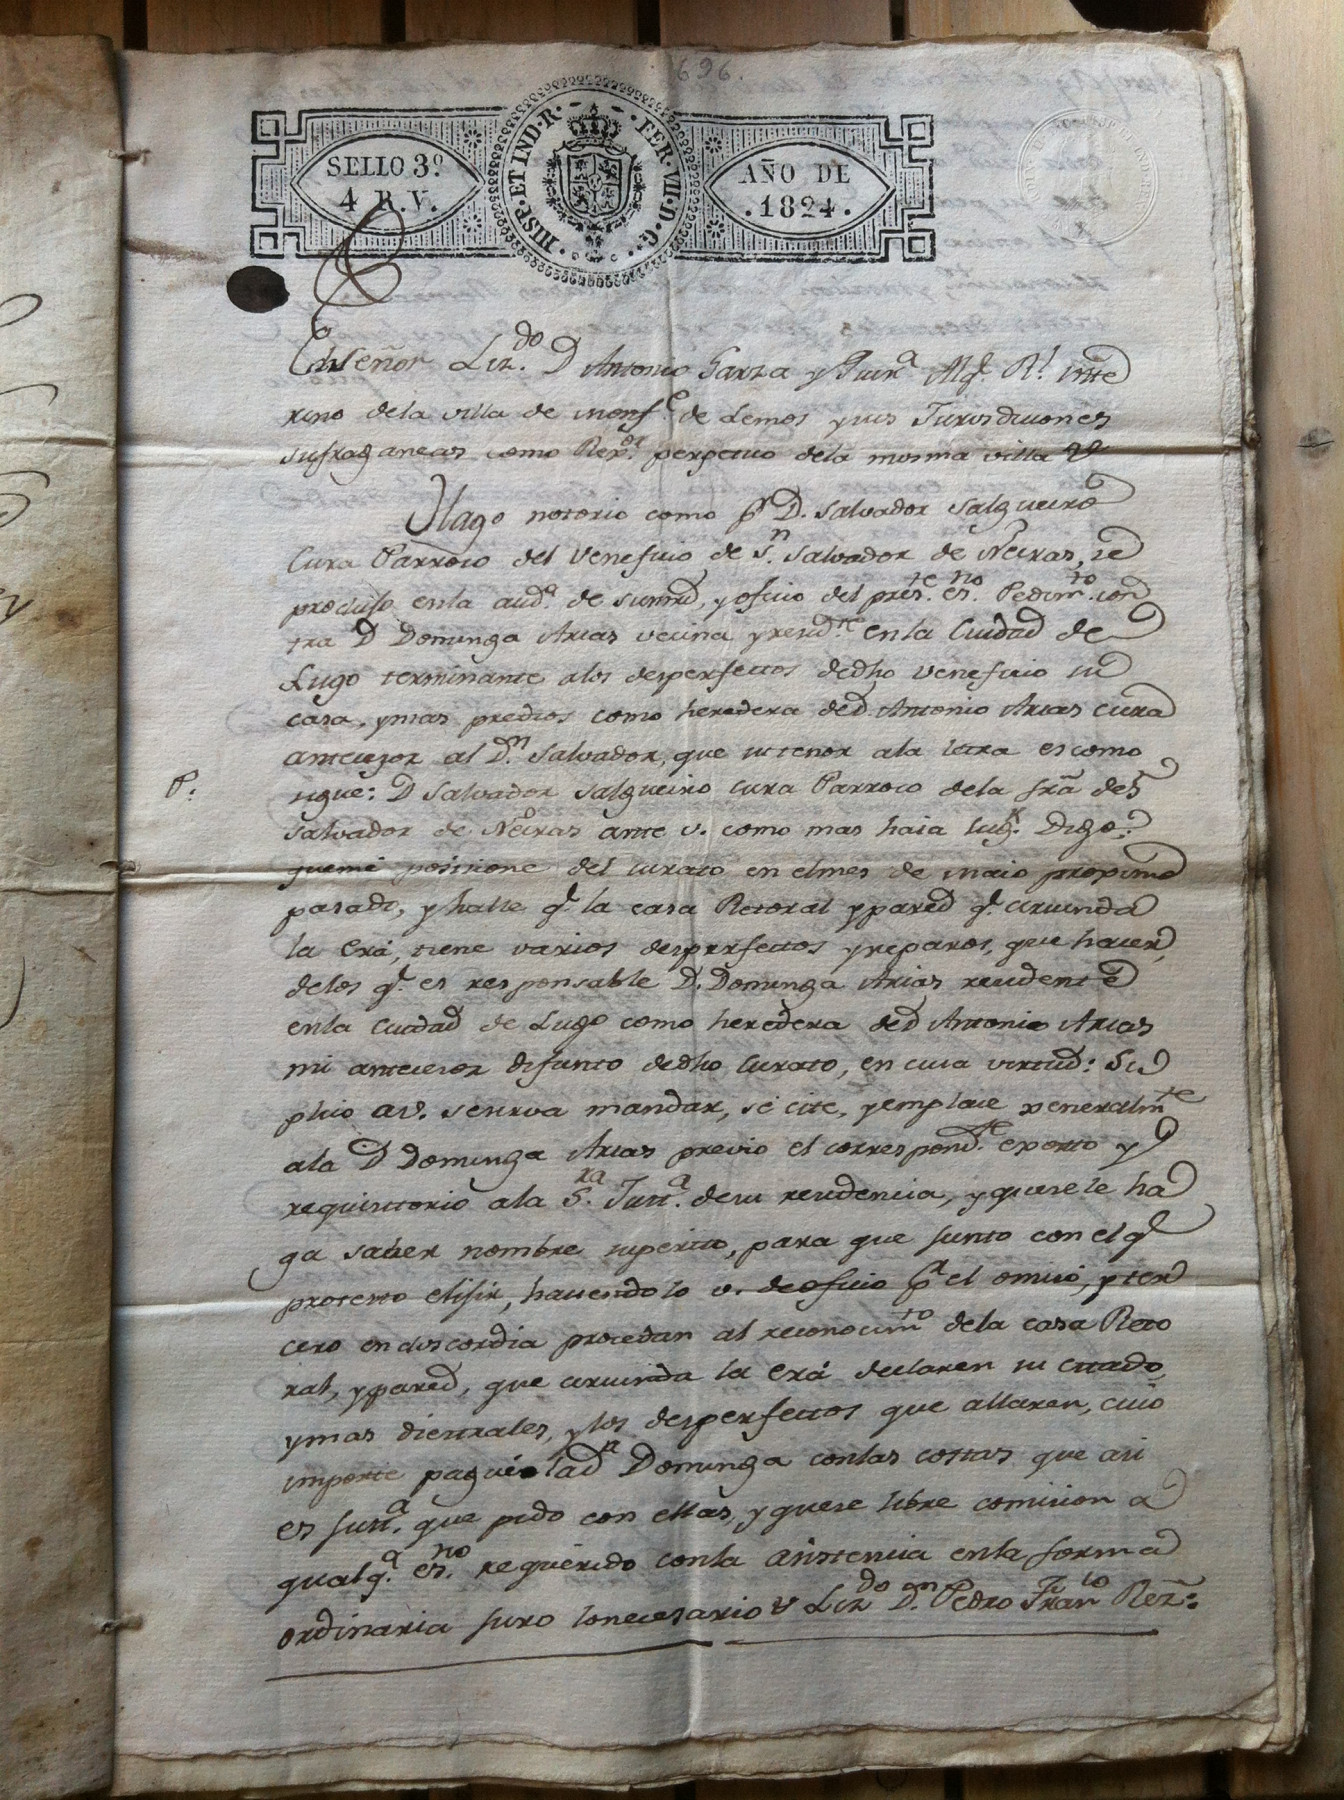 696.
SELLO 3º
4 R. V.
HISP. ET IND. R. FER. VII. D. G.
AÑO DE
.1824.
El Señor Liz.do D Antonio Garza y Alg.e R.l inte
rino de la villa de monf.e de Lemos y sus Jurisdiciones
sufraganeas como perpetuo dela misma villa
Hago notorio como p.r D. Salvador Salgueiro
Cura Parroco del Veneficio de S.n Salvador de Neiras, se
produjo enla aud.a de sumrd, y oficio del pres.te es.no Pedim.to con
tra D Dominga Arias vecina y resid.te en la Ciudad de
Lugo terminante alos desperfectos dedho Veneficio su
casa, ymas predios como heredera ded. Antonio Arias cura
antecesor al D.n Salvador, que su tenor ala letra es como
P.
sigue: D Salvador Salgueiro cura Parroco dela frã de S
Salvador de Neiras ante v. como mas haia lug.r Digo:
queme posisione del curato en elmes de maio proximo
pasado, y halle q.e la casa Retoral ypared q.e circunda
la Erá, tiene varios desperfectos yreparos, que hacer,
delos q.e es responsable D. Dominga Arias residente
enla Ciudad de Lugo como heredera ded Antonio Arias
mi antecesor difunto dedho Curato, en cuia virtud: Su
plico av. sesirva mandar, se cite, yemplace generalm.te
ala D Dominga Arias previo el correspond.te exorto y
requisitorio ala S.ra Just.a desu residencia, y quese le ha
ga saber nombre superito, para que junto con el q.e
protesto elijir, haciendolo v. de oficio p.r el omiso, y ter
cero en discordia procedan al reconocim.to dela casa Reto
ral, ypared, que circunda la Erá declaren su estado,
ymas diestrales, ylos desperfectos que allaren, cuio
importe pague lad.n Dominga conlas costas que asi
es just.a que pido con ellas, y quese libre comision a
qualq.a es.no requerido conla asistencia enla forma
ordinaria juro lonecesario Liz.do D.n Pedro Fran.co Rez: